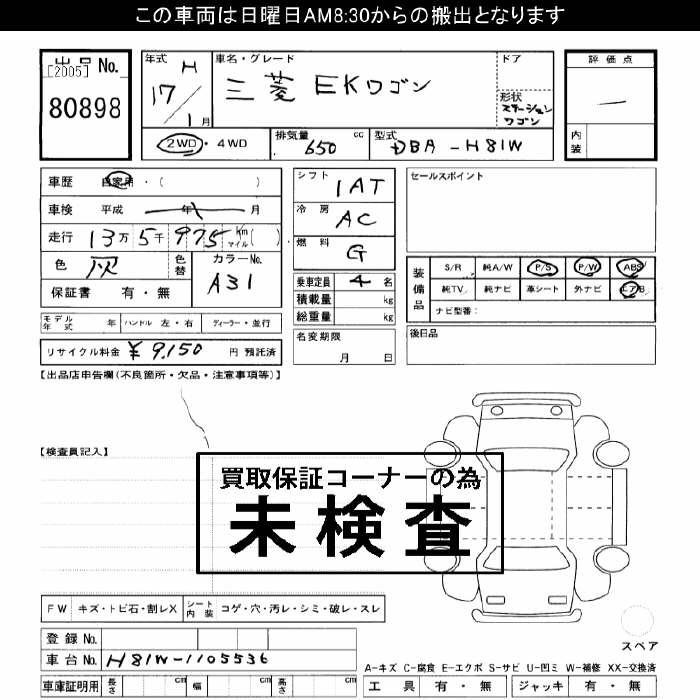 この車両は日曜日AM8:30からの搬出となります
出品 No.
[2005]
80898
年式 H
17/1月
車名・グレード
三菱 EKワゴン
ドア
形状
ステーション
ワゴン
評価点
内装
2WD・4WD
排気量 650 cc
型式 DBA-H81W
車歴 自家用・( )
車検 平成 年 月
走行 13万5千975 km マイル( )
色 灰
色替
カラーNo.
A31
保証書 有・無
シフト
IAT
冷房
AC
燃料
G
乗車定員 4 名
積載量 kg
総重量 kg
名変期限
月 日
セールスポイント
装備品
S/R 純A/W P/S P/W ABS
純TV 純ナビ 革シート 外ナビ エアB
ナビ型番:
後日品
モデル年式 年 ハンドル 左・右 ディーラー・並行
リサイクル料金 ¥9,150 円 預託済
【出品店申告欄(不良箇所・欠品・注意事項等)】
【検査員記入】
買取保証コーナーの為
未検査
FW キズ・トビ石・割レX シート内装 コゲ・穴・汚レ・シミ・破レ・スレ
登録 No.
車台 No. H81W-1105536
車庫証明用 長さ cm 幅 cm 高さ cm
スペア
A-キズ C-腐食 E-エクボ S-サビ U-凹ミ W-補修 XX-交換済
工具 有・無 ジャッキ 有・無